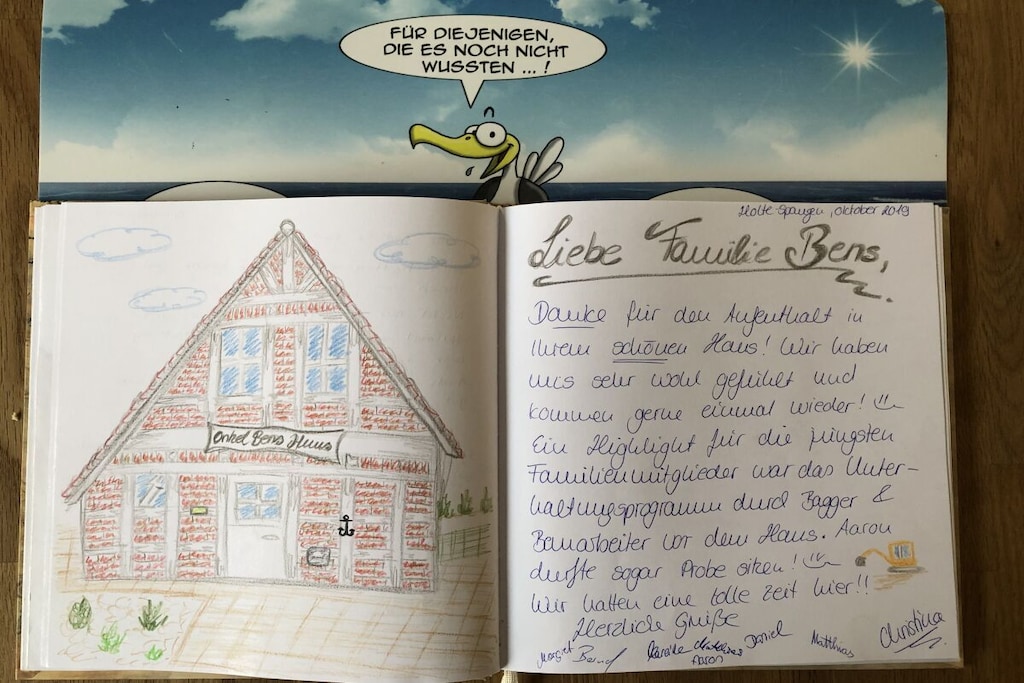 FÜR DIEJENIGEN,
DIE ES NOCH NICHT
WUSSTEN ... !
Onkel Bens Huus
Holte-Spangen, Oktober 2019
Liebe Familie Bens,
Danke für den Aufenthalt in
Ihrem schönen Haus! Wir haben
uns sehr wohl gefühlt und
kommen gerne einmal wieder!
Ein Highlight für die jüngsten
Familienmitglieder war das Unter-
haltungsprogramm durch Bagger &
Bauarbeiter vor dem Haus. Aaron
durfte sogar Probe sitzen!
Wir hatten eine tolle Zeit hier!!
Herzliche Grüße
Margret Bernd Daniel Matthias Christina
Aaron